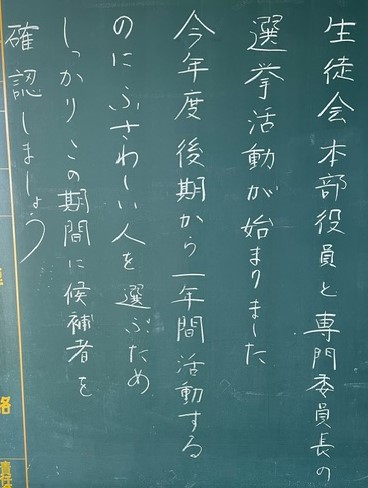 生徒会本部役員と専門委員長の
選挙活動が始まりました
今年度後期から一年間活動する
のにふさわしい人を選ぶため
しっかりこの期間に候補者を
確認しましょう
絡
責任